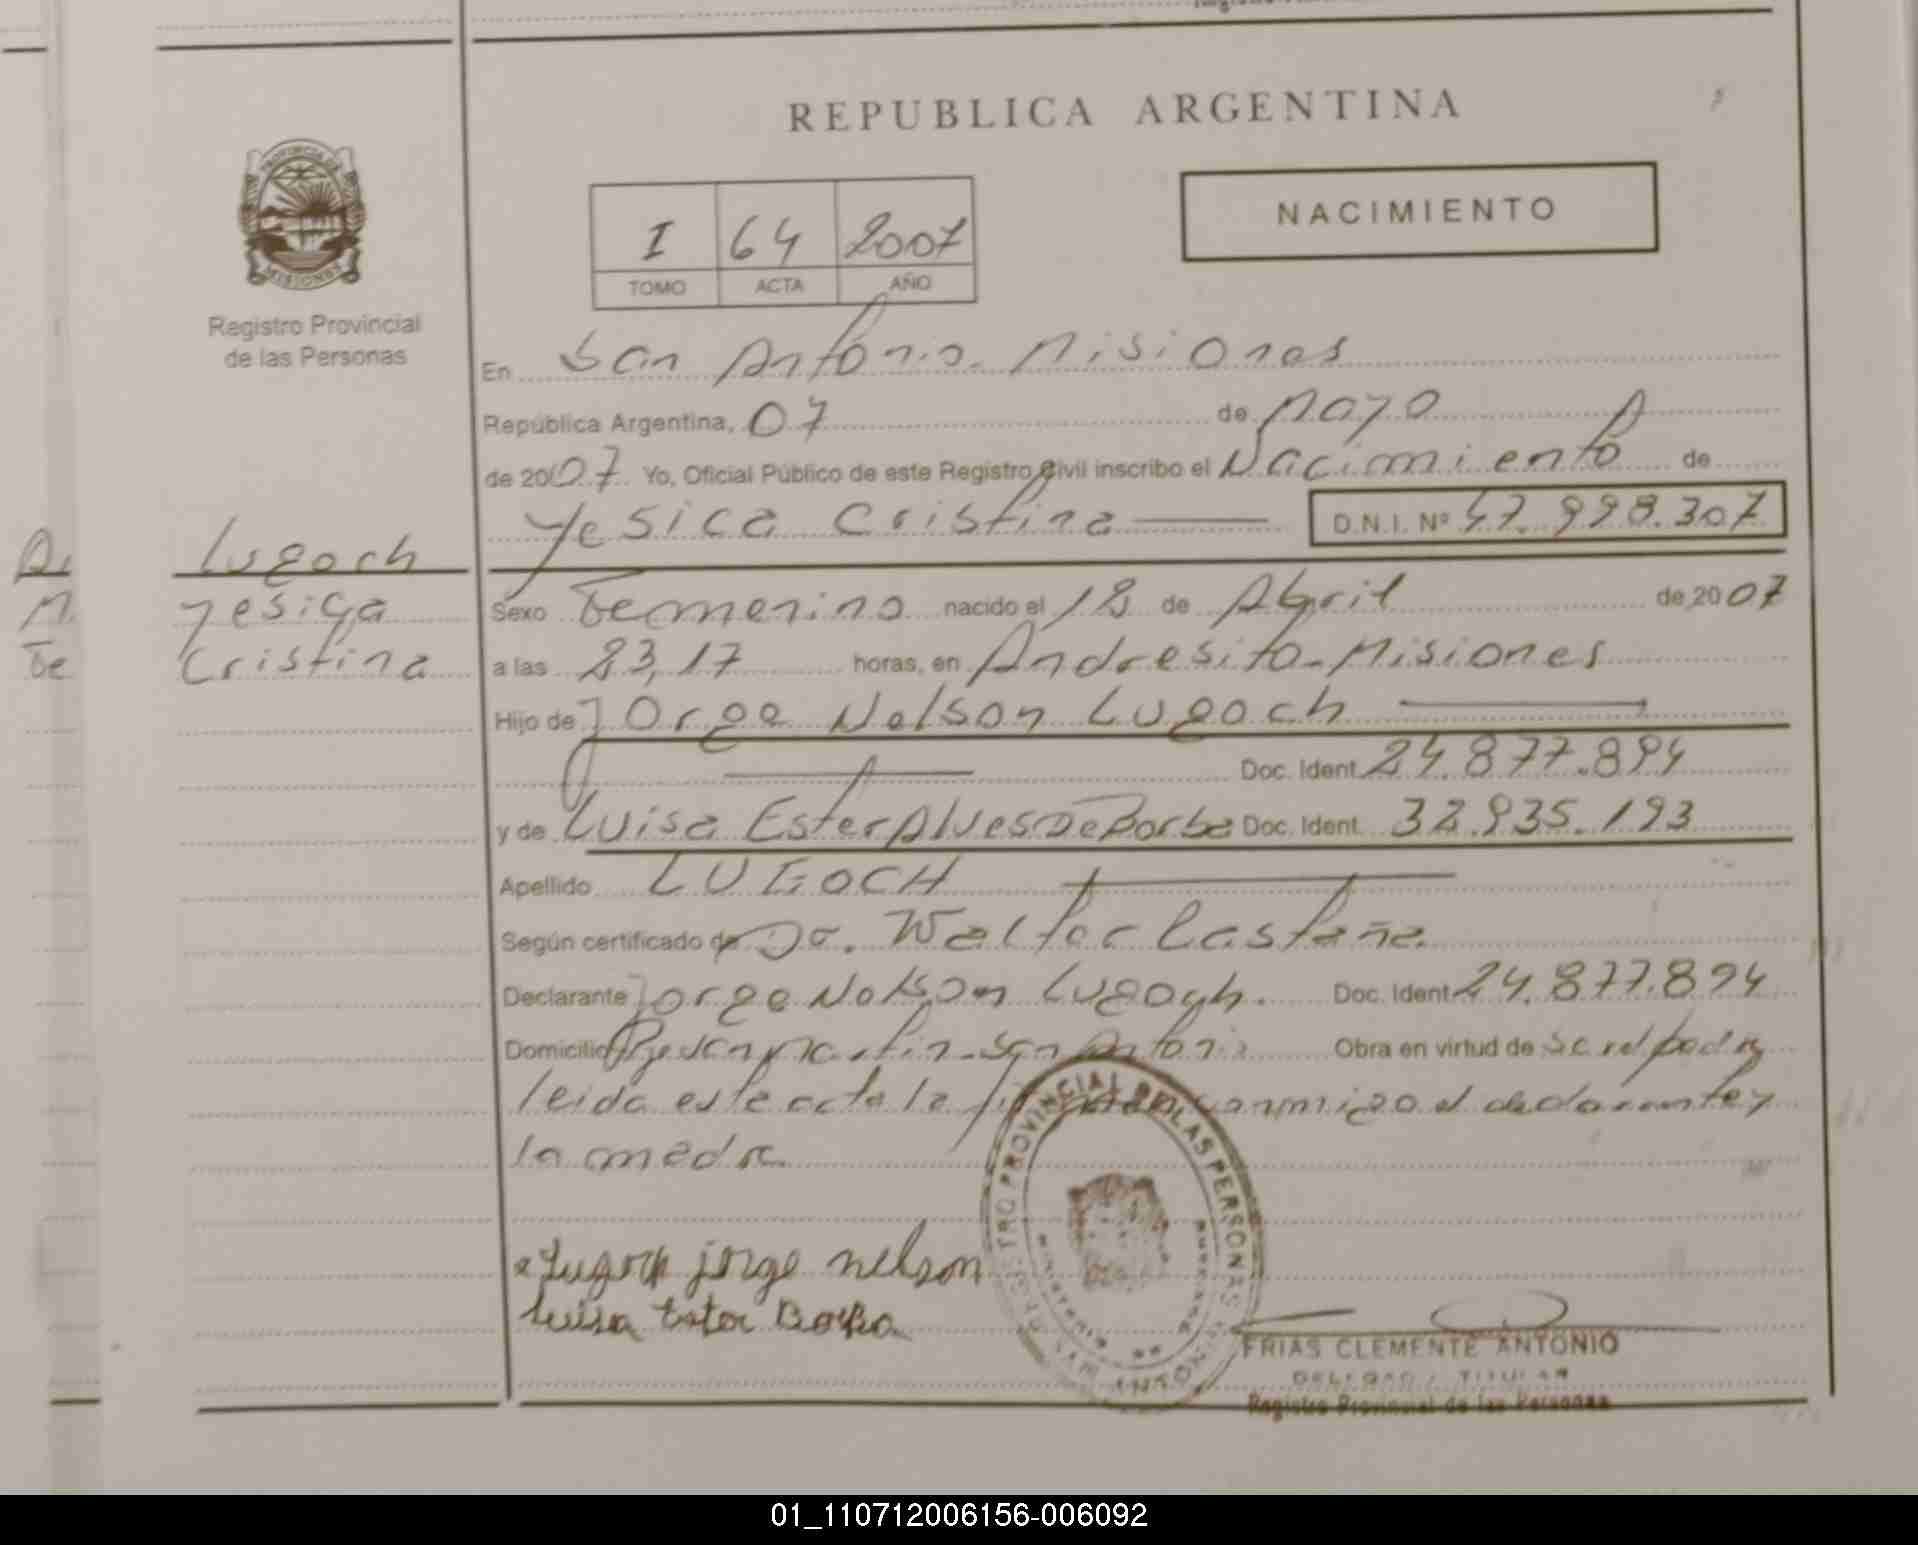 REPUBLICA ARGENTINA
PROVINCIA DE
MISIONES
Registro Provincial
de las Personas
NACIMIENTO
I 64 2007
TOMO ACTA AÑO
En San Antonio. Misiones
República Argentina, 07 de Mayo
de 2007 Yo, Oficial Público de este Registro Civil inscribo el Nacimiento de
Yesica Cristina D.N.I. Nº 47.998.307
Lugoch
Yesica
Cristina
Sexo Femenino nacido el 18 de Abril de 2007
a las 23,17 horas, en Andresito-Misiones
Hijo de Jorge Nelson Lugoch
Doc. Ident. 24.877.894
y de Luisa Ester Alves De Borba Doc. Ident. 32.935.193
Apellido LUGOCH
Según certificado de Dr. Walter Castaña
Declarante Jorge Nelson Lugoch. Doc. Ident. 24.877.894
Domicilio San Antonio Obra en virtud de ser el padre
leida este acta la firman conmigo el declarante y
la madre
Lugoch jorge nelson
luisa ester Borba
REGISTRO PROVINCIAL DE LAS PERSONAS
SAN ANTONIO
FRIAS CLEMENTE ANTONIO
DELEGADO TITULAR
Registro Provincial de las Personas
01_110712006156-006092